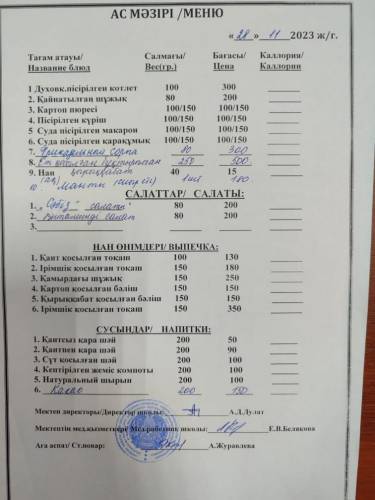 АС МӘЗІРІ /МЕНЮ
« 28 » 11 2023 ж/г.
Тағам атауы/ Салмағы/ Бағасы/ Каллория/
Название блюд Вес(гр.) Цена Каллории
1 Духовк.пісірілген котлет 100 300
2. Қайнатылған шұжық 80 200
3. Картоп пюресі 100/150 100/150
4. Пісірілген күріш 100/150 100/150
5 Суда пісірілген макарон 100/150 100/150
6. Суда пісірілген қарақұмық 100/150 100/150
7. сорпа 300
8. Ет 250 500
9. Нан 40 15
10 Манты 1шт 180
САЛАТТАР/ САЛАТЫ:
1. „Сәбіз" салаты 80 200
2. Витаминді салат 80 200
3.
НАН ӨНІМДЕРІ/ ВЫПЕЧКА:
1. Қант қосылған тоқаш 100 130
2. Ірімшік қосылған тоқаш 150 180
3. Қамырдағы шұжық 150 250
4. Картоп қосылған бәліш 150 150
5. Қырыққабат қосылған бәліш 150 150
6. Ірімшік қосылған тоқаш 150 350
СУСЫНДАР/ НАПИТКИ:
1. Қантсыз қара шай 200 50
2. Қантпен қара шай 200 90
3. Сүт қосылған шай 200 100
4. Кептірілген жеміс компоты 200 100
5. Натуральный шырын 200 100
6. Какао 200 150
Мектеп директоры/Директор школы: А.Д.Дулат
Мектептің мед.қызметкері/ Мед.работник школы: Е.В.Белякова
Аға аспаз/ Ст.повар: А.Журавлева